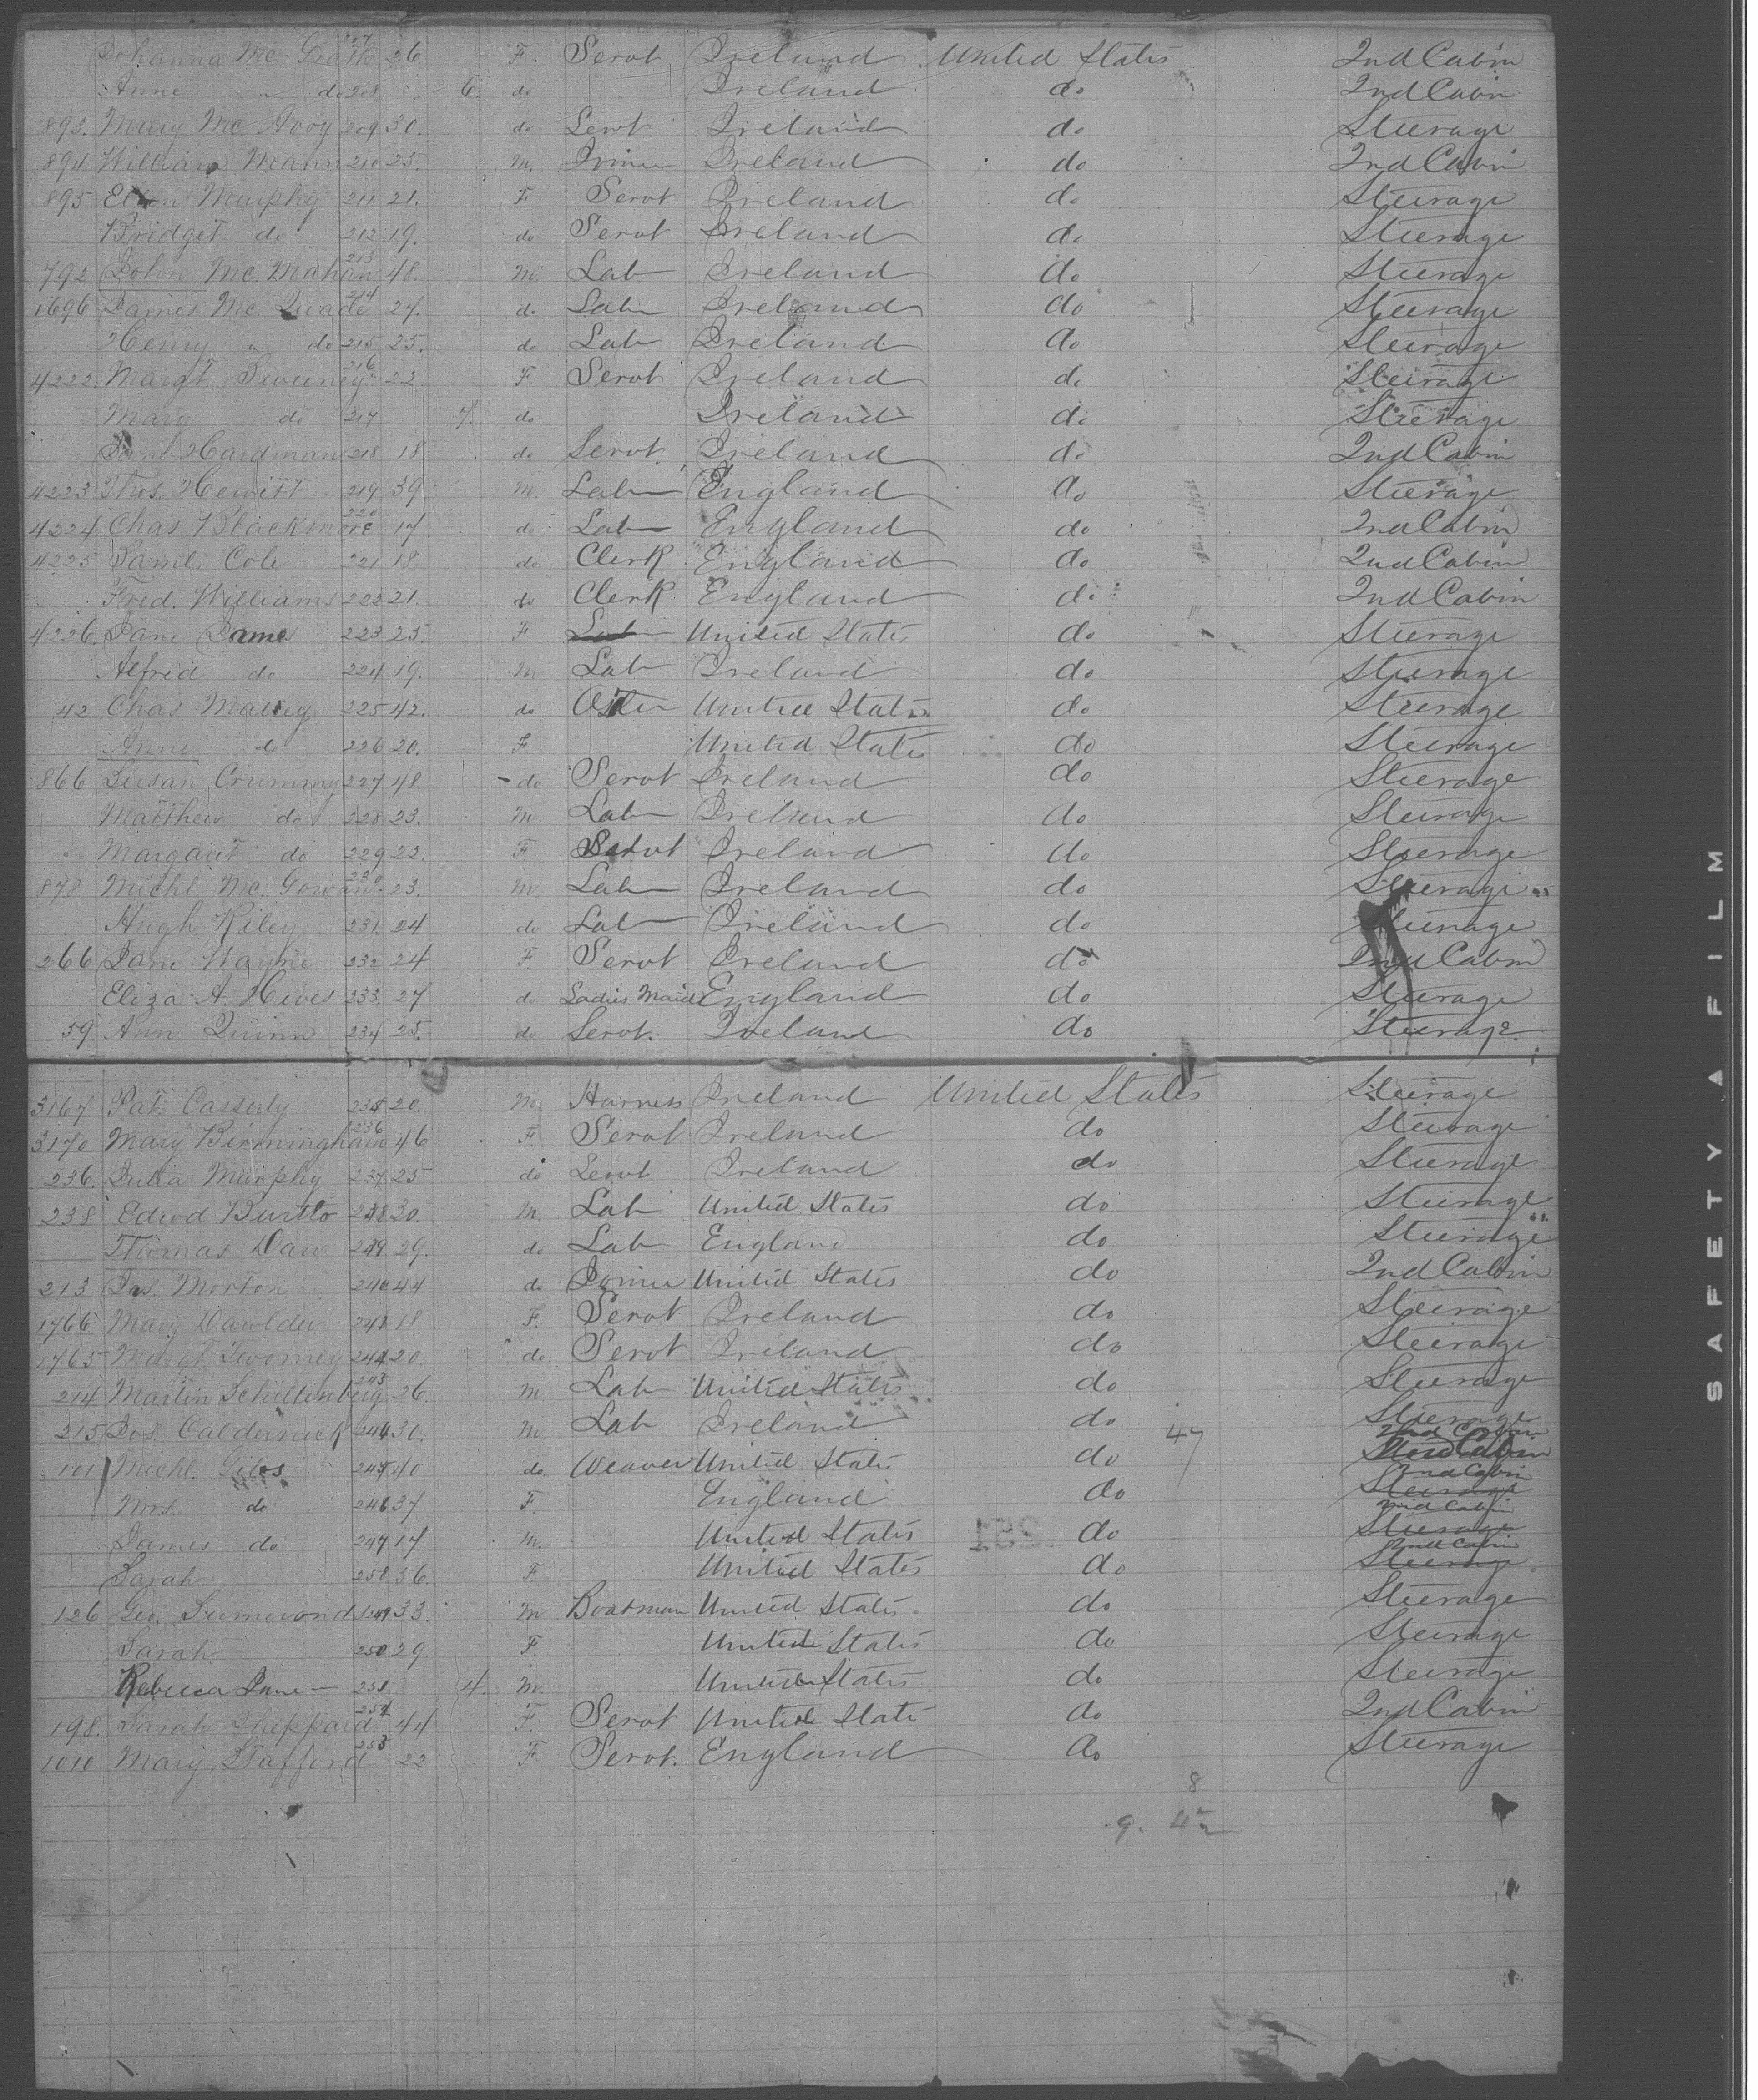 Johanna Mc Grath 207 26 F. Servt Ireland United States 2nd Cabin
Anne " do 208 6. do Ireland do 2nd Cabin
893. Mary Mc. Avoy 209 30. do Servt Ireland do Steerage
894 William Mann 210 25. M. Ireland do 2nd Cabin
895 Ellen Murphy 211 21. F Servt Ireland do Steerage
Bridget do 212 19. do Servt Ireland do Steerage
792 John Mc. Mahan 213 48. M. Lab Ireland do Steerage
1696 James Mc. Quade 214 27. do Lab Ireland do Steerage
Henry " do 215 25. do Lab Ireland do Steerage
4222 Margt. Sweeney 216 22 F Servt Ireland do Steerage
Mary do 217 7. do Ireland do Steerage
Jane Hardman 218 18 do Servt Ireland do 2nd Cabin
4223 Thos. Hewitt 219 39 M. Lab England do Steerage
4224 Chas Blackmore 220 17 do Lab England do 2nd Cabin
4225 Saml. Cole 221 18 do Clerk England do 2nd Cabin
Fred. Williams 222 21. do Clerk England do 2nd Cabin
4226. Jane James 223 25. F Lab United States do Steerage
Alfred do 224 19. M Lab Ireland do Steerage
42 Chas 225 42. do United States do Steerage
Anne do 226 20. F United States do Steerage
866 Susan Crummy 227 48 do Servt Ireland do Steerage
Matthew do 228 23. M Lab Ireland do Steerage
Margaret do 229 22. F Servt Ireland do Steerage
878 Michl. Mc. Gowan 230 23. M Lab Ireland do Steerage
Hugh Riley 231 24 do Lab Ireland do Steerage
266 Jane Wayne 232 24 F. Servt Ireland do 2nd Cabin
Eliza A. Hives 233. 27 do Ladies Maid England do Steerage
59 Ann Quinn 234 25. do Servt. Ireland do Steerage
3167 Pat. Casserly 235 20. M Harness Ireland United States Steerage
3170 Mary Birmingham 236 46 F. Servt Ireland do Steerage
236. Julia Murphy 237 25 do Servt Ireland do Steerage
238 Edwd 238 30. M. Lab United States do Steerage
Thomas Daw 239 29. do Lab England do Steerage
213 Morton 240 44 do Joiner United States do 2nd Cabin
1766 Mary 241 18 F. Servt Ireland do Steerage
1765 Margt. Twomey 242 20. do Servt Ireland do Steerage
214 Martin Schillenberg 243 26. M Lab United States do Steerage
215 Jos. Caldernick 244 30. M. Lab Ireland do 47 Steerage
101 Michl. Giles 245 40 do. Weaver United States do 2nd Cabin
Mrs. do 246 37 F. England do Steerage 2nd Cabin
James do 247 17 M. United States do Steerage 2nd Cabin
Sarah 248 56. F United States do Steerage 2nd Cabin
126 Geo. 249 33. M Boatman United States do Steerage
Sarah 250 29 F. United States do Steerage
Rebecca Jane 251 4. M. United States do Steerage
198. Sarah Sheppard 252 44 F. Servt United State do 2nd Cabin
1010 Mary Stafford 253 22 F Servt. England do Steerage
8
SAFETY A FILM